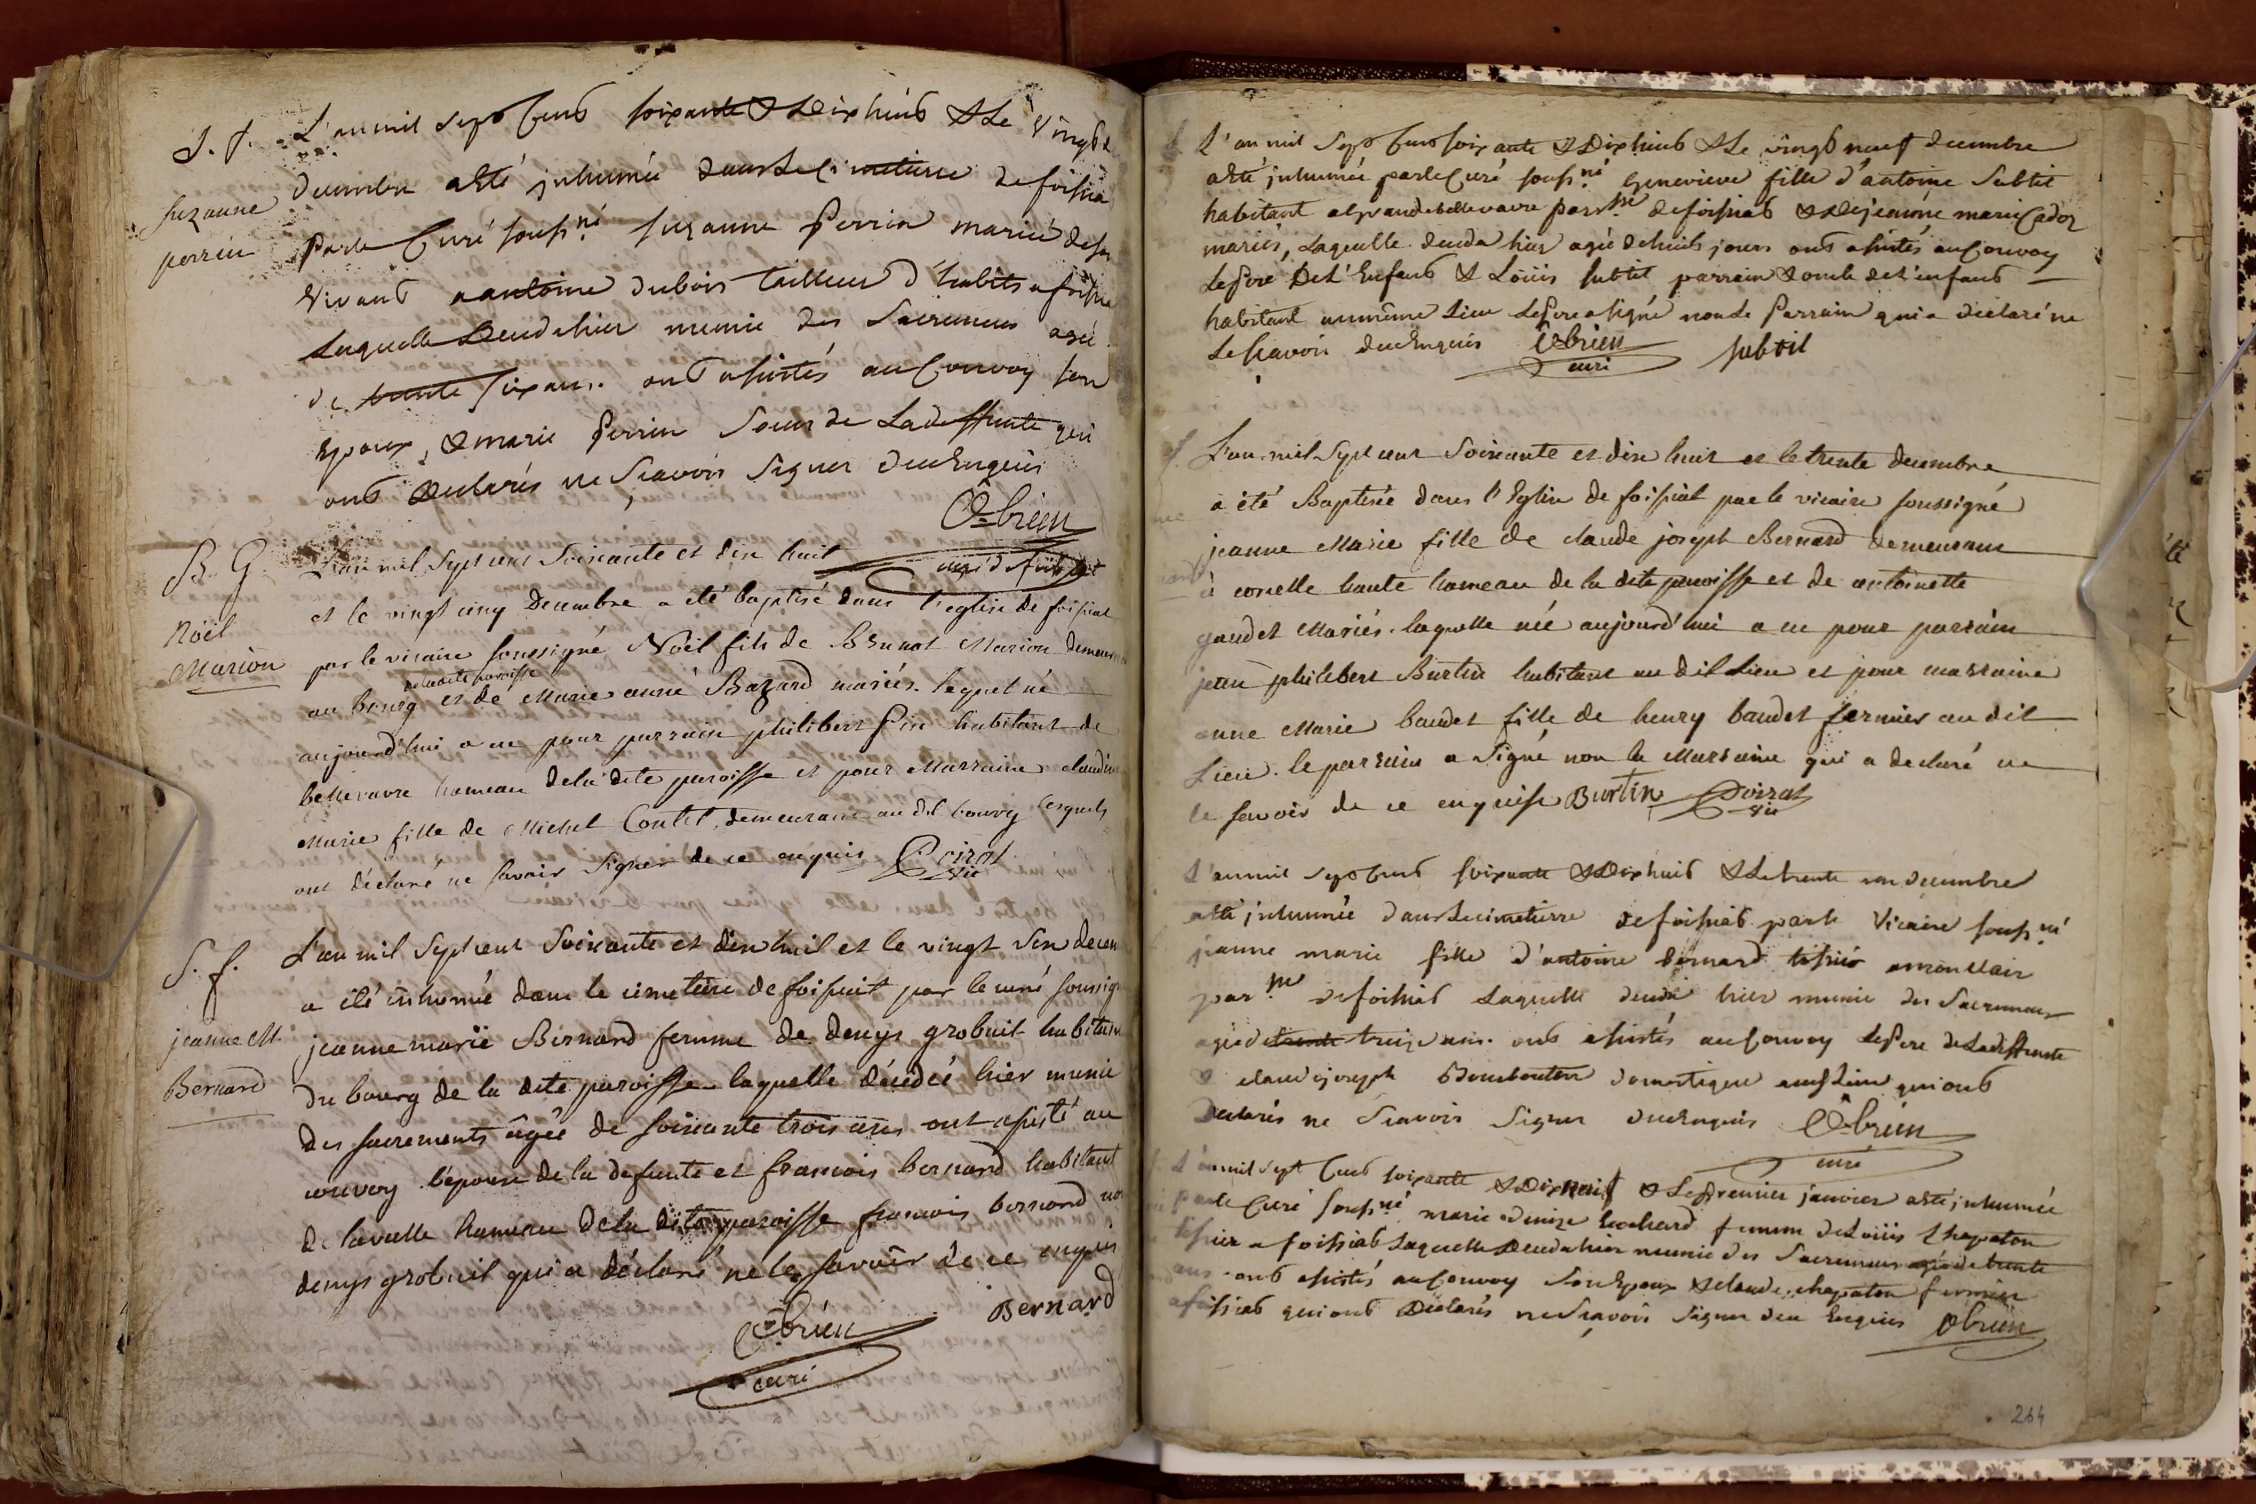 S. f.
Suzanne
perrin
L'an mil sept cens soixante & Dix huit & Le vingt
decembre a esté inhumée dans Le Cimetiere de foissia
par le Curé souss.né suzanne Perrin mariée de son
vivant a antoine dubois tailleur d'habits a foissia
Laquelle deceda hier munie des Sacremens agée
de trente six ans. ont assistés au Convoy son
Epoux, & marie Perrin Soeur de La deffunte qui
ont Declarés ne Scavoir Signer dece Enquis
O-brien
curé de foissiat
B. G.
Noël
Marion
L'an mil sept cent soixante et dix huit
et le vingt cinq Decembre a été baptisé dans l'eglise de foissiat
par le vicaire soussigné Noël fils de Marion
de la dite paroisse
au bourg et de Marie anne Bazard mariés. lequel né
aujourd'hui a eu pour parrain philibert habitant de
bellevavre hameau de la dite paroisse et pour Marraine claudine
Marie fille de Michel Contet, demeurant au dit bourg lesquels
ont déclaré ne savoir signer de ce enquis Poizat
vic
S. f.
jeanne M.
Bernard
L'an mil sept cent soixante et dix huit et le vingt six decem
a été inhumée dans le cimetiere de foissiat par le curé soussig
jeanne marie Bernard femme de denys grobuit habitant
du bourg de la dite paroisse laquelle décédée hier munie
des sacrements âgée de soixante trois ans ont assisté au
convoy l'epoux de la defunte et francois bernard habitant
de hameau de la dite paroisse francois bernard non
denys grobuit qui a déclaré ne le savoir de ce enquis
Obrien Bernard
curé
L'an mil sept cens soixante & Dix huit & Le vingt neuf decembre
a esté inhumée par le Curé souss.né Genevieve fille d'antoine Subtil
habitant a la grande bellevavre parr.sse de foissiat & de jeanne marie Cador
mariés, Laquelle deceda hier agée de huit jours ont assistés au Convoy
Le Pere De L'Enfant & Loüis subtil parrain & oncle de l'enfant
habitant au même Lieu Le Pere a signé non Le Parrain qui a declaré ne
Le scavoir de ce Enquis Obrien subtil
curé
L'an mil sept cent soixante et dix huit et le trente decembre
a été Baptisée dans l'Eglise de foissiat par le vicaire soussigné
jeanne Marie fille de claude joseph Bernard demeurant
à corcelle haute hameau de la dite paroisse et de antoinette
gaudet Mariés. laquelle née aujourd'hui a eu pour parrain
jean philibert Burtin habitant au dit Lieu et pour marraine
anne Marie baudet fille de henry baudet fermier au dit
Lieu. le parrain a Signé non la Marraine qui a declaré ne
le savoir de ce enquise Burtin Poizat
vic
L'an mil sept cens soixante & Dix huit & Le trente un decembre
a esté inhumée dans Le cimetierre de foissiat par le Vicaire souss.né
jeanne marie fille d'antoine bernard tissier a monclair
par.sse de foissiat Laquelle deceda hier munie des Sacremens
agée de trente treize ans. ont assistés au Convoy Le Pere de La deffunte
& claude joseph domestique au Lieu qui ont
Declarés ne Scavoir Signer de ce Enquis O-brien
curé
L'an mil sept Cens soixante & Dix neuf & Le Premier janvier a esté inhumée
par le Curé souss.né marie denise bochard femme de Loüis Chapaton
tissier a foissiat Laquelle deceda hier munie des Sacremens agée de trente
ans. ont assistés au Convoy Son Epoux & claude chapaton fermier
a foissiat qui ont Declarés ne Scavoir signer de ce Enquis Obrien
264